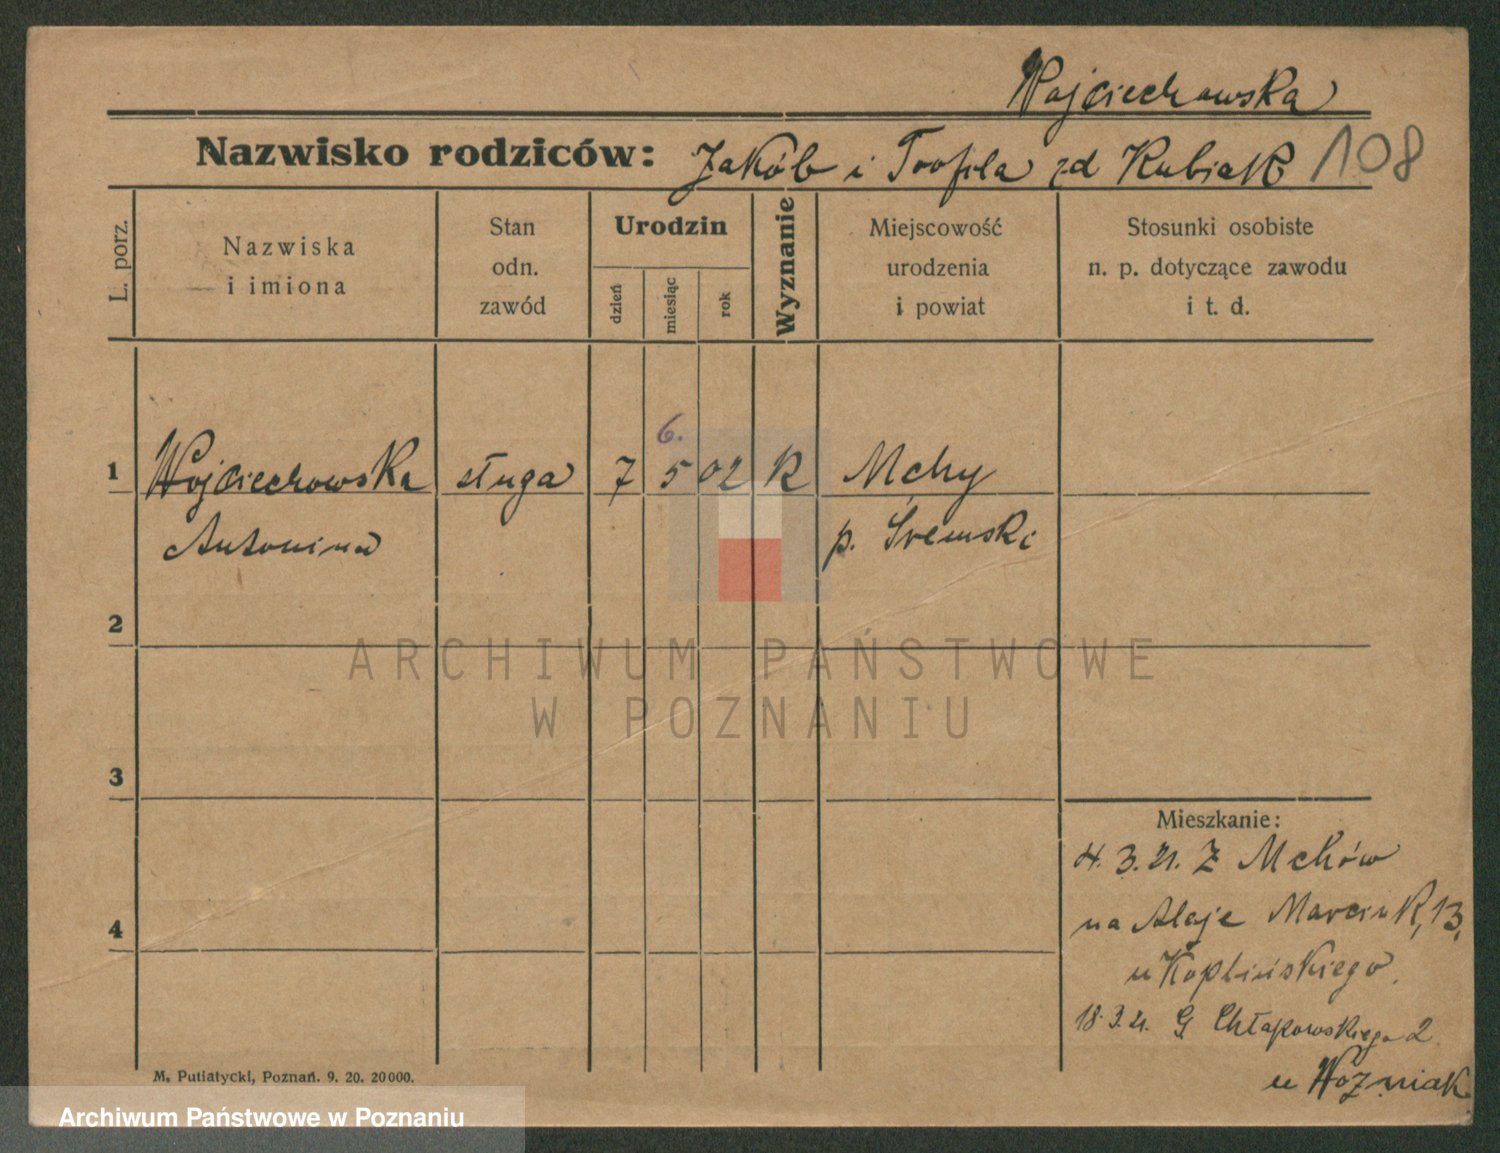 Wojciechowska
Nazwisko rodziców: Jakób i Teofila zd Kubiak 108
L. porz.
Nazwiska
i imiona
Stan
odn.
zawód
Urodzin
dzień
miesiąc
rok
Wyznanie
Miejscowość
urodzenia
i powiat
Stosunki osobiste
n. p. dotyczące zawodu
i t. d.
6.
1 Wojciechowska sługa 7 5 02 K Mchy
Antonina p. Śremski
2
ARCHIWUM PAŃSTWOWE
W POZNANIU
3
Mieszkanie:
4. 3. 21. Z Mchów
4
na Aleje Marcink, 13,
u Koplińskiego.
18.3.21. G. Chłapowskiego 2
u Woźniak
M. Putiatycki, Poznań. 9. 20. 20000.
Archiwum Państwowe w Poznaniu